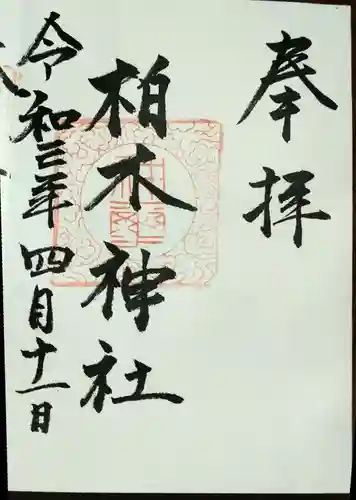 奉拝
柏木神社
令和三年四月十一日